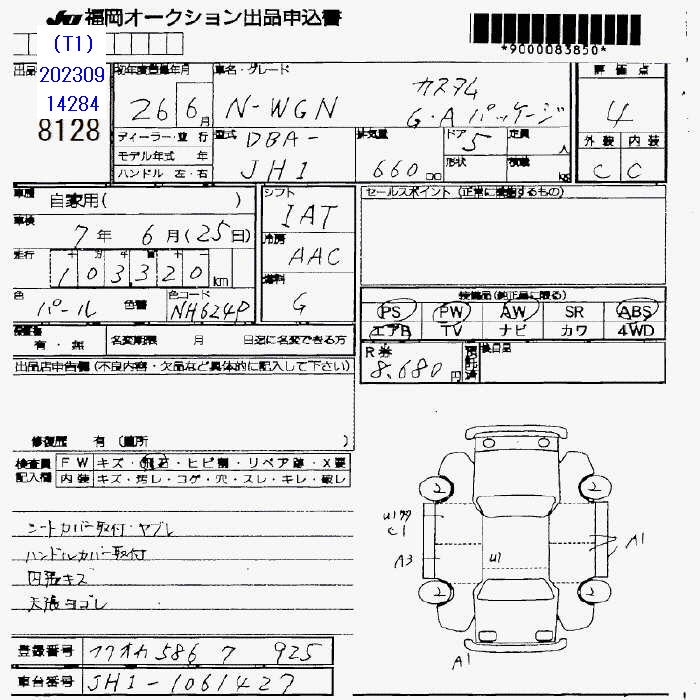 JU 福岡オークション出品申込書
(T1)
*9000083850*
出品 202309 14284 8128
初年度登録年月 26 6月
車名・グレード N-WGN カスタム G・Aパッケージ
評価点 4
外装 内装
C C
ディーラー・並行
モデル年式 年
ハンドル 左・右
型式 DBA-JH1
排気量 660 cc
ドア 5
形状
定員 人
積載 kg
車歴 自家用( )
車検 7年 6月(25日)
走行 103320 km
色 パール 色替
色コード NH624P
シフト IAT
冷房 AAC
燃料 G
セールスポイント (正常に機能するもの)
装備品(純正品に限る)
PS PW AW SR ABS
エアB TV ナビ カワ 4WD
有・無 名変期限 月 日迄に名変できる方
R券 8,680円 預託済
後日品
出品店申告欄 (不良内容・欠品など具体的に記入して下さい)
修復歴 有 (箇所 )
検査員記入欄
FW キズ・飛石・ヒビ割・リペア跡・X要
内装 キズ・汚レ・コゲ・穴・スレ・キレ・破レ
シートカバー取付・ヤブレ
ハンドルカバー取付
内張キズ
天張ヨゴレ
2 2
C1
A3 U1 A1
2 2
A1
登録番号 フクオカ 586 ワ 925
車台番号 JH1-1061427